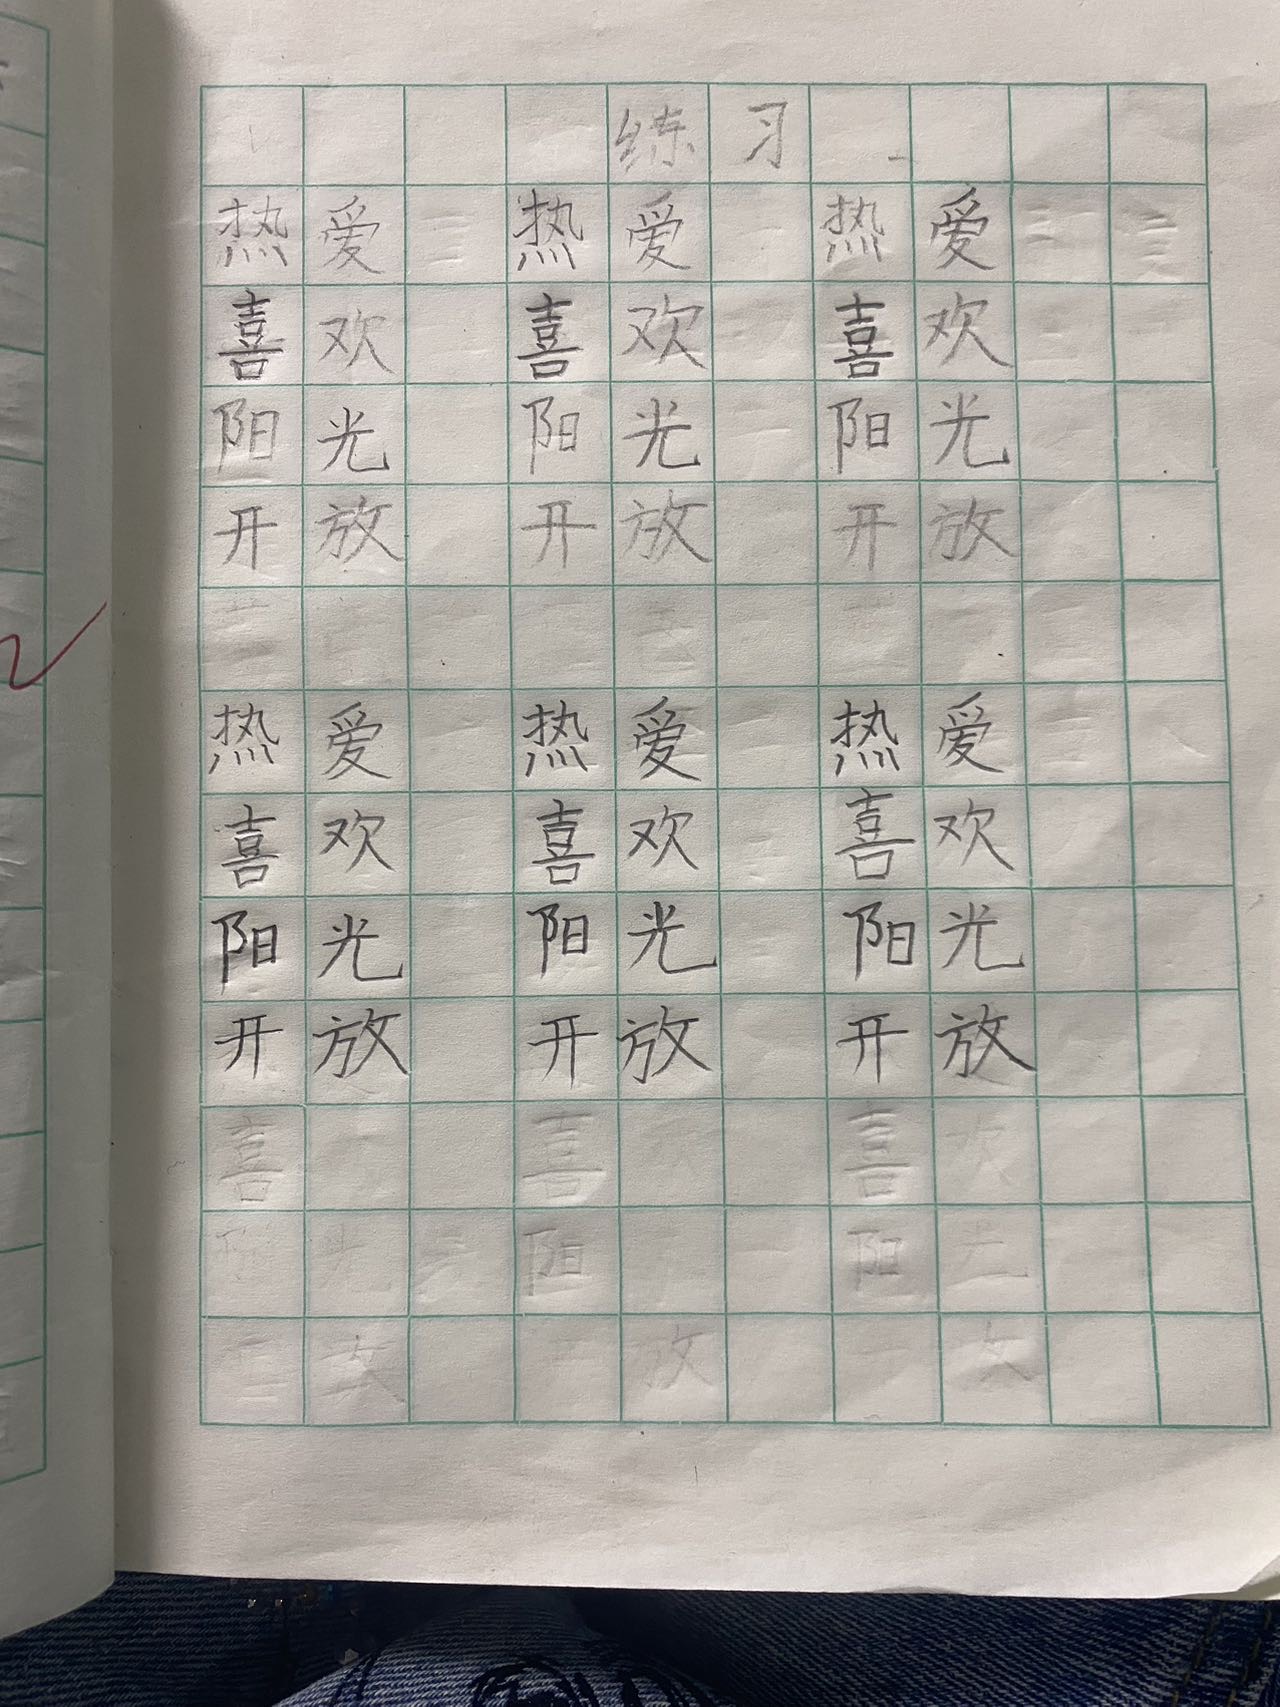 练习
热爱 热爱 热爱
喜欢 喜欢 喜欢
阳光 阳光 阳光
开放 开放 开放
热爱 热爱 热爱
喜欢 喜欢 喜欢
阳光 阳光 阳光
开放 开放 开放
喜 喜 喜欢
阳光 阳 阳光
放